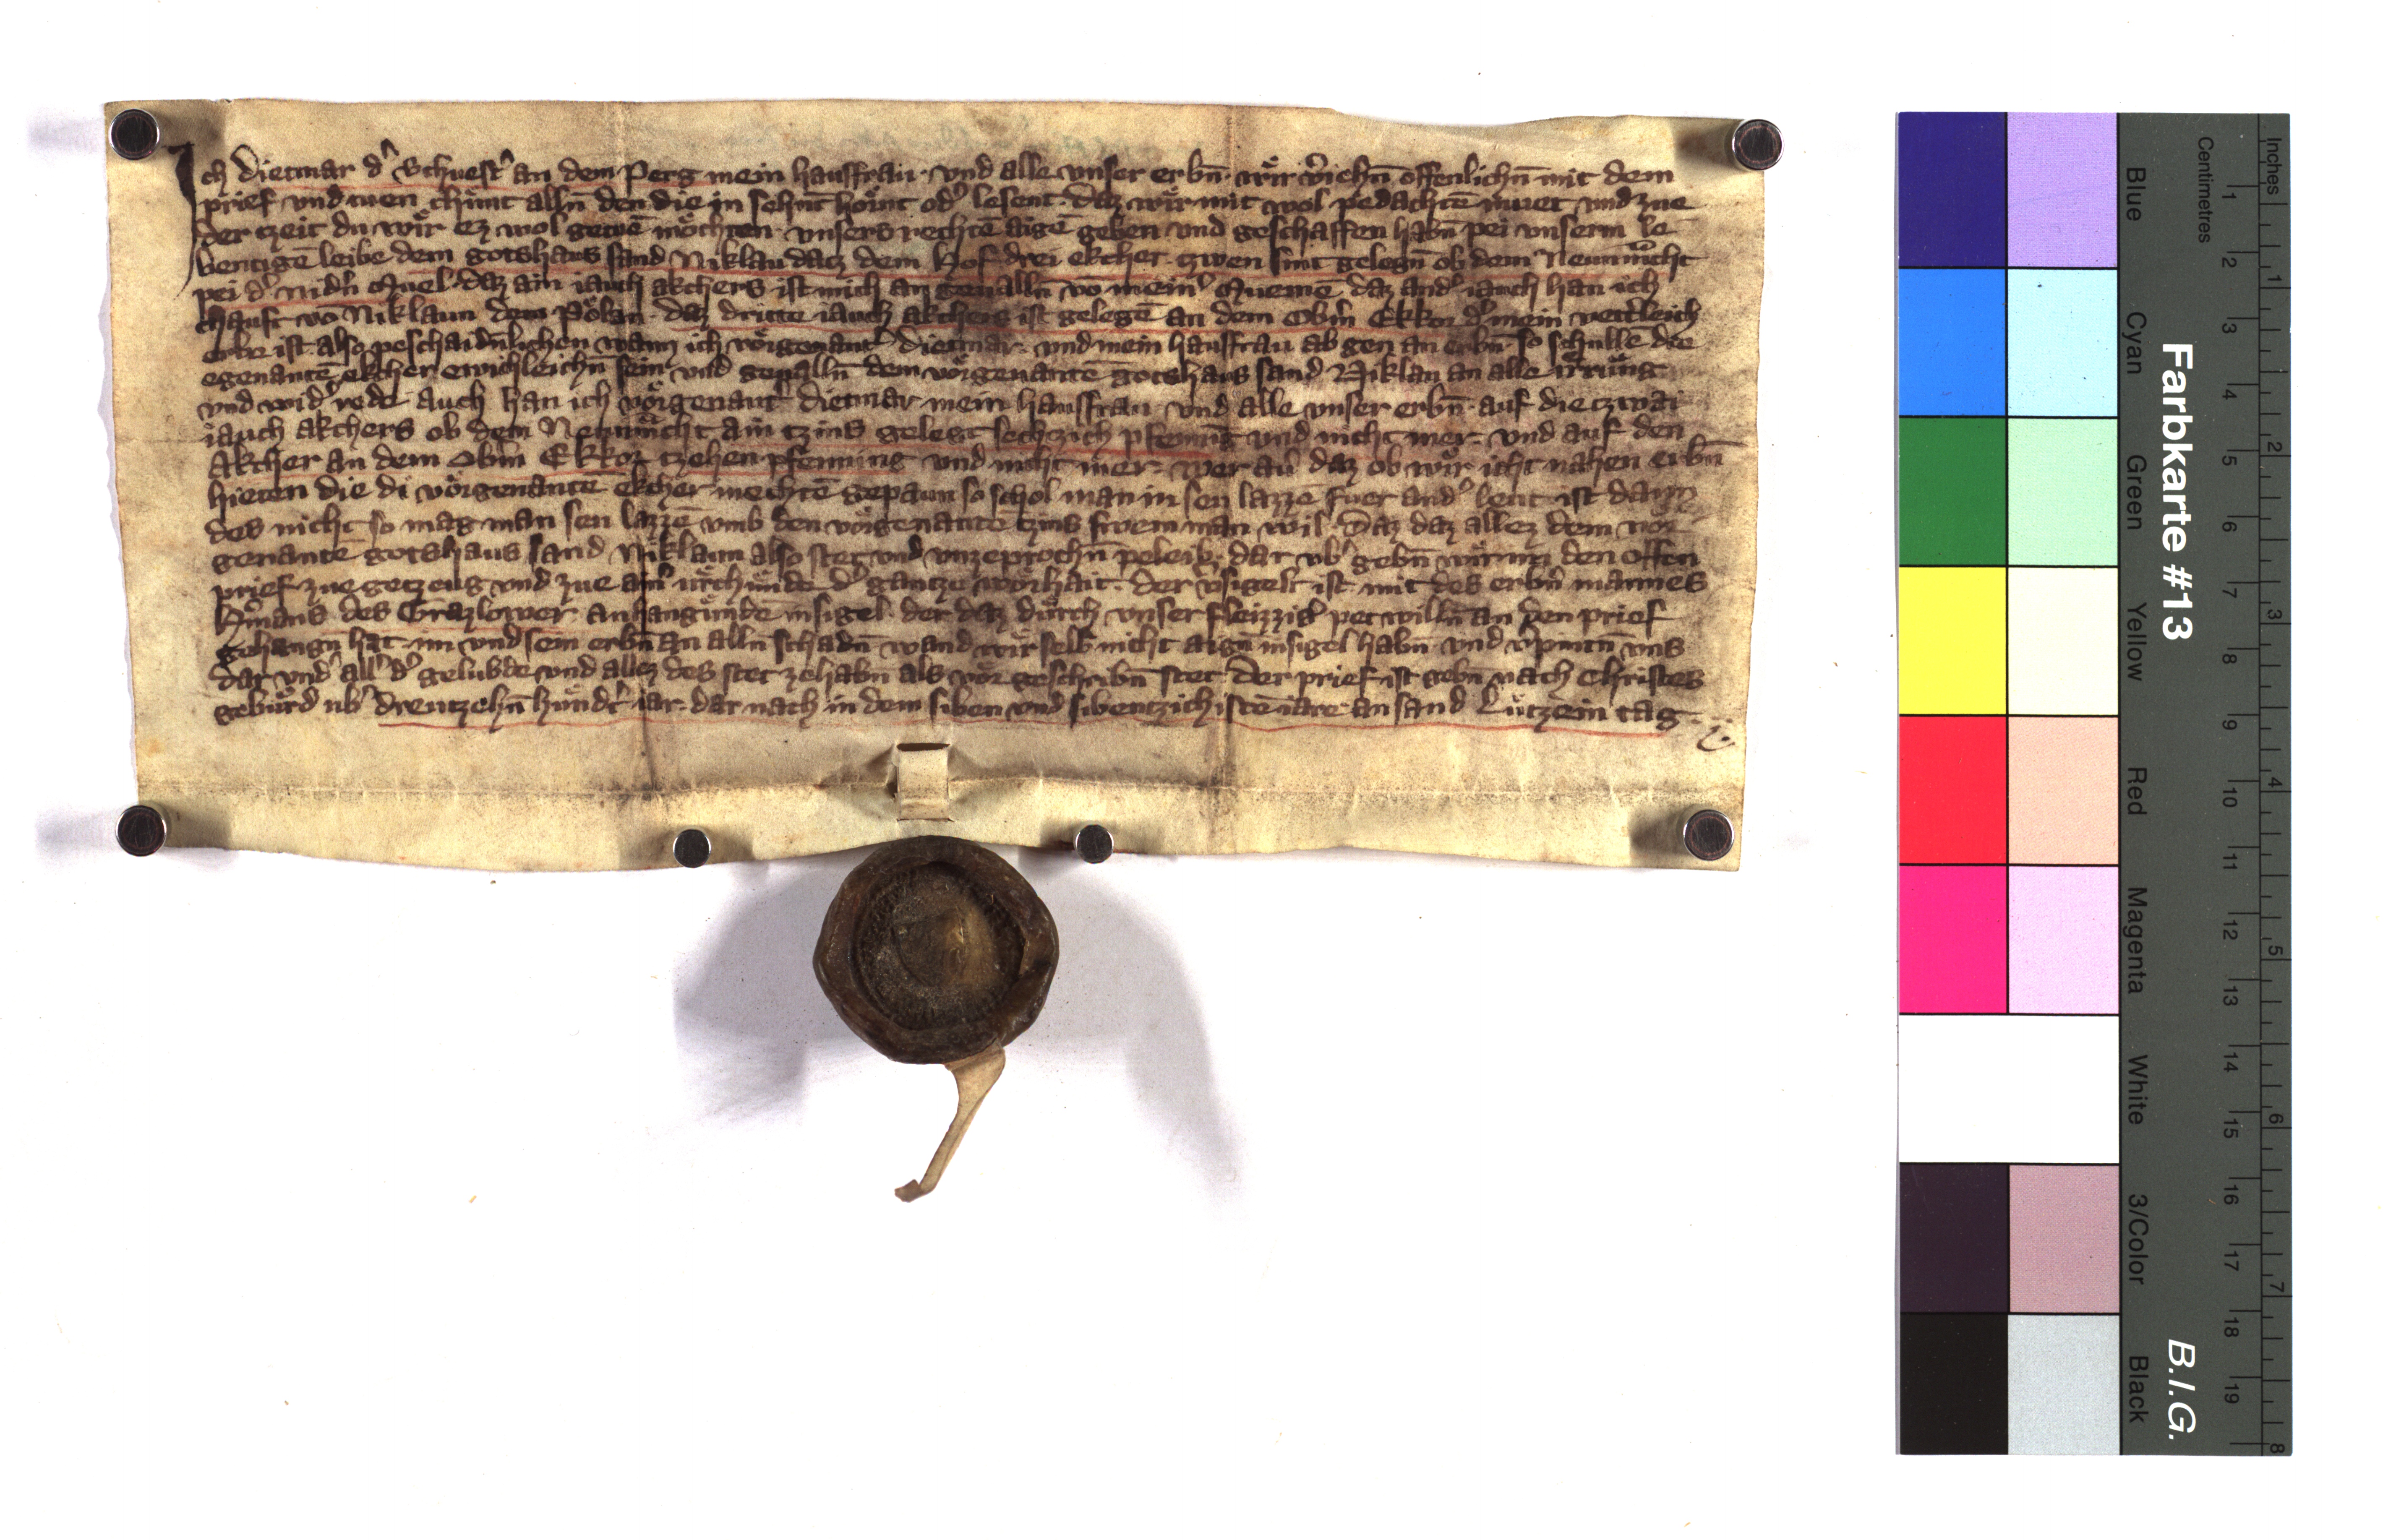 Ich Dietmar dˀ Schuestˀ an dem Perg mein hausfrau · vnd alle vnser erbn̄ · wir vˀiehn̄ offenlichn̄ mit dem
prief vnd tuen chunt alln̄ den die in sehnt hörnt odˀ lesent · daz wir mit wol pedachtē muet vnd zue
der tzeit du wir ez wol getuē möchten · vnsers rechtē aigē geben vnd geschaffen habn̄ pei vnserm le
bentigē leibe dem gotshaus sand Niklau datz dem Hof drei ekcher · tzwen sint gelegn̄ ob dem
pei dˀ nidˀn Muel · daz ain iauch akchers ist mich an geualln̄ vō meinˀ Muemē daz andˀ iauch han ich
chauft vō Niklaun dem · daz dritte iauch akchers ist gelegē an dem Obˀm Ekkor dˀ mein
erbe ist also peschaidn̄lichen wann ich vörgenantˀ Dietmar · vnd mein hausfrau ab gen an erbn̄ · so schullē die
egenantē ekcher ewichleichn̄ sein vnd geualln̄ dem vörgenantē gotshaus sand Niklau an alle irrung
vnd widˀ rede Auch han ich vörgenantˀ Dietmar mein hausfrau · vnd alle vnser erbn̄ · auf die tzwai
iauch akchers ob dem ain tzins gelegt sechtzich pfenning vnd nicht mer · vnd auf den
Akcher an dem Obˀm Ekkor tzehen pfenning vnd nicht mer · wer au daz ob wir icht nahen erbn̄
hieten die di vörgenantē ekcher mechtē gepaun so schol man in sen lazzē fuer andˀ leut · ist dann
des nicht so mag man sen lazzē vmb den vörgenantē tzins swem man wil · Daz daz allez dem vor
genantē gotshaus sand Niklaun also stet vnd vnzeprochn̄ peleib · dar vbˀ gebn̄ wir im den offen
prief zue getzeug vnd zue ainˀ vrchunde dˀ gantzē worhait · der vˀsigelt ist mit des erbˀn mannes
Hˀmans des Grazlower anhangunde insigel · der daz durch vnser fleizzigˀ pet willn̄ an den prief
gehangn̄ hat · im vnd sein erbn̄ an alln̄ schadn̄ wand wir selb nicht aign̄ insigel habn̄ · vnd vˀpintn̄ vns
dar vndˀ allˀ dˀ gelubde vnd allez des stet ze habn̄ als vör geschribn̄ stet · Der prief ist gebn̄ nach Christes
geburd vbˀ dreutzehn̄ hundˀt iar · dar nach in dem siben vnd sibentzichistē iare an sand Lutzein tag ·
Farbkarte #13
B.I.G.
Blue Cyan Green Yellow Red Magenta White 3/Color Black
Centimetres 1 2 3 4 5 6 7 8 9 10 11 12 13 14 15 16 17 18 19
Inches 1 2 3 4 5 6 7 8